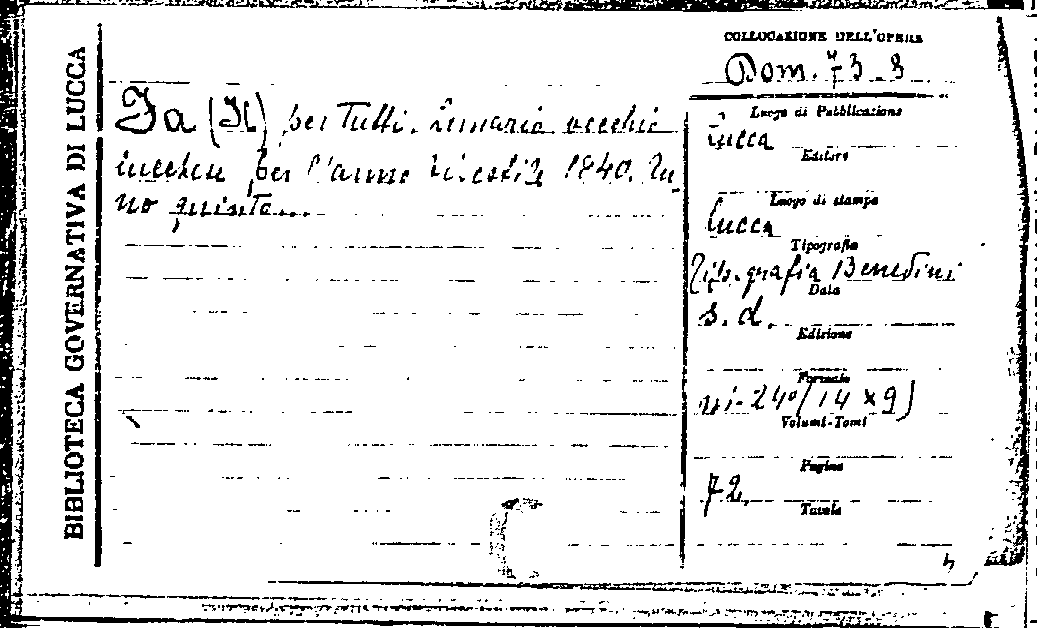 BIBLIOTECA GOVERNATIVA DI LUCCA
Fa (Il) per tutti. Lunario vecchio
lucchese per l'anno bisestile 1840. An
no quinto...
COLLOCAZIONE DELL'OPERA
Dom. 73.3
Luogo di Pubblicazione
Lucca
Editore
Luogo di stampa
Lucca
Tipografia
Tipografia Benedini
Data
s. d.
Edizione
Formato
in-24° (14 x 9)
Volumi-Tomi
Pagine
72.
Tavole